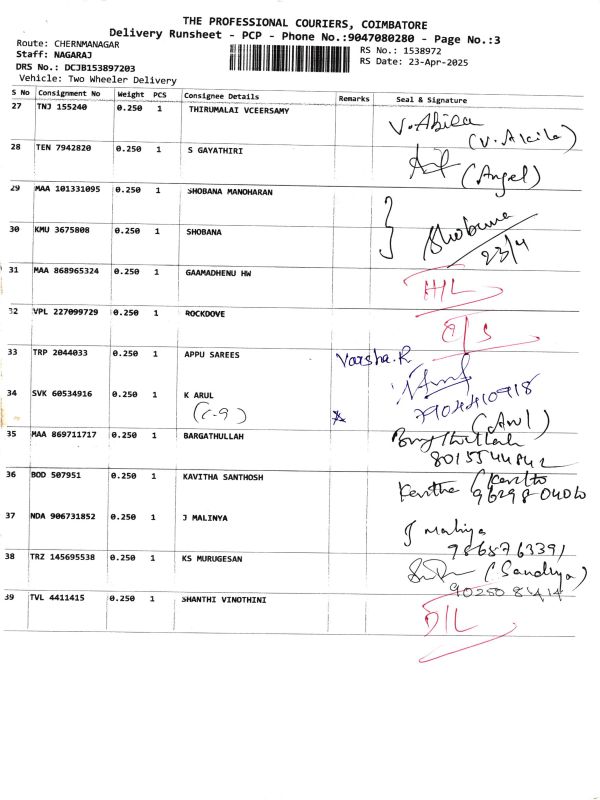 THE PROFESSIONAL COURIERS, COIMBATORE
Delivery Runsheet - PCP - Phone No.:9047080280 - Page No.:3
Route: CHERNMANAGAR
Staff: NAGARAJ
DRS No.: DCJB153897203
Vehicle: Two Wheeler Delivery
RS No.: 1538972
RS Date: 23-Apr-2025
S No Consignment No Weight PCS Consignee Details Remarks Seal & Signature
27 TNJ 155240 0.250 1 THIRUMALAI VCEERSAMY
V. Abila
(V. Akila)
28 TEN 7942820 0.250 1 S GAYATHIRI
(Angel)
29 MAA 101331095 0.250 1 SHOBANA MANOHARAN
30 KMU 3675808 0.250 1 SHOBANA
Shobana
23/4
31 MAA 868965324 0.250 1 GAAMADHENU HW
H/L
32 VPL 227099729 0.250 1 ROCKDOVE
33 TRP 2044033 0.250 1 APPU SAREES Varsha.R
7904410918
34 SVK 60534916 0.250 1 K ARUL
(C-9)
(Arul)
35 MAA 869711717 0.250 1 BARGATHULLAH
8015544842
36 BOD 507951 0.250 1 KAVITHA SANTHOSH
Kavitha
96298 04020
37 NDA 906731852 0.250 1 J MALINYA
J Maliya
9868763391
38 TRZ 145695538 0.250 1 KS MURUGESAN
(Sandhya)
9025081414
39 TVL 4411415 0.250 1 SHANTHI VINOTHINI
D/L